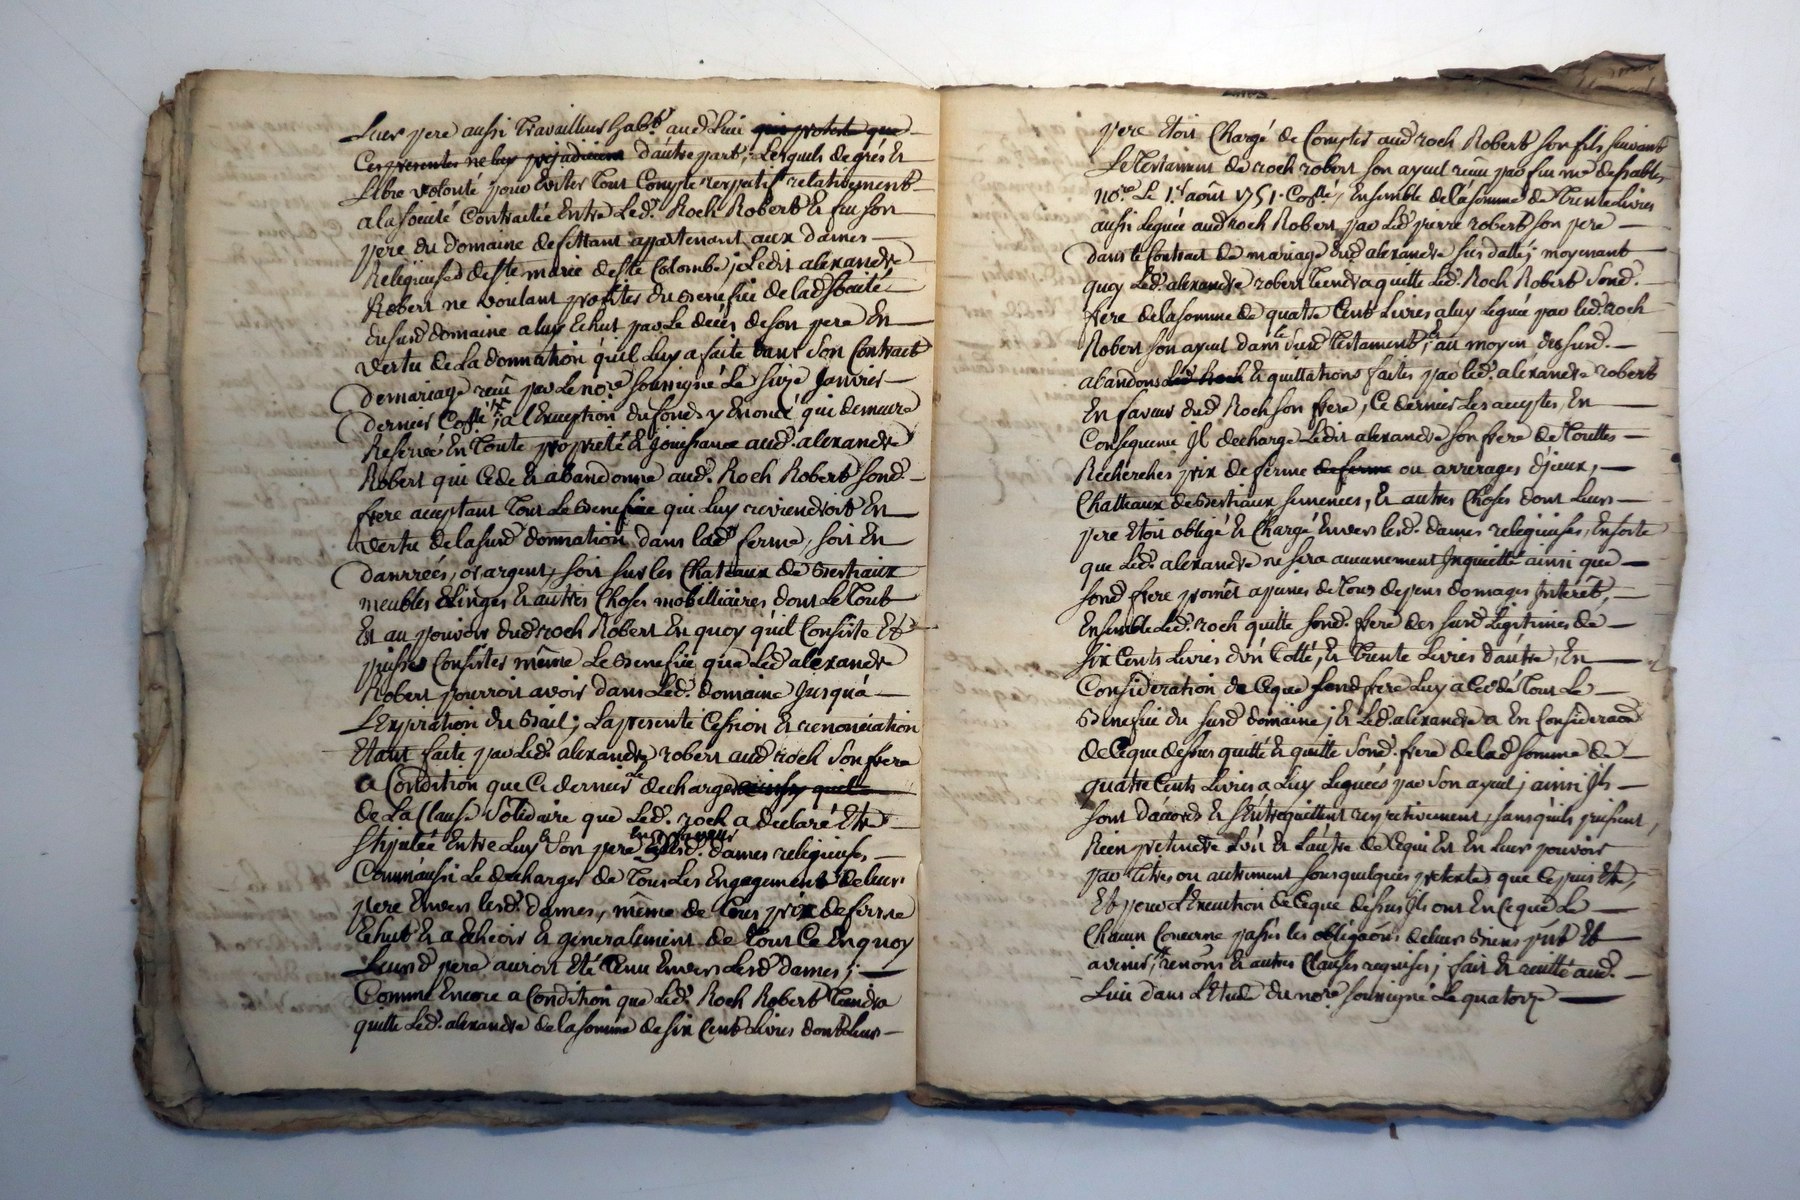 Leur pere aussi travailleur hab.t aud Lieu qui proteste que
Cespresentes neluy prejudicient d'autre part, Lesquels degrés &
Libre volonté pour Eviter tout Compte respectif relativement
a la societé Contractée Entre Led. Roch Robert & feu son
pere du domaine de appartenant aux dames
Religieuses deste marie deste Colombe, Ledit alexandre
Robert ne voulant profiter du Benefice de lad societé
du susd domaine a luy Echut par Le decès de son pere En
vertu de La donnation qu'il Luy a faite dans son Contract
de mariage reçu par Le no.re soussigné Le seize Janvier
dernier Collé, a l'Exception du fonds y Enoncé qui demeure
Reservé En toute proprieté & jouissance aud. alexandre
Robert qui Cede & abandonne aud. Roch Robert sond.
frere acceptant tout Le Benefice qui Luy reviendroit En
vertu de la susd donnation dans lad ferme, soit En
danrrées, or argent, soit sur les Chateaux de Bestiaux
meubles & linges & autres Choses mobilliaires dont Le tout
Est au pouvoir dud roch Robert En quoy qu'il Consiste Et
puisse Consister même Le Benefice que Led alexandre
Robert pourroit avoir dans Led. domaine Jusqu'à
L'Expiration du Bail; La presente Cession & renonciation
Etant faite par Led. alexandre robert aud roch son frere
a Condition que Ce dernier Le decharge ainsy qu'il
de La Clause Solidaire que Led. roch a declaré Etre
Stipulée Entre Luy & son pere En faveur desd. dames religieuses,
Comm'aussi Le decharger de tous Les Engagements de leur
pere Envers lesd. dames, même de tous prix de ferme
Echut & a Echeoir & generalement de tout Ce En quoy
Leursd pere auroit Eté tenu Envers Lesd dames;
Comme Encore a Condition que Led. Roch Robert tiendra
quitte Led. alexandre de la somme de six Cent Livres dont Leur
pere Etoit Chargé de Compter aud roch Robert son fils suivant
Le testament de roch robert son ayeul reçu par feu me desrables
no.re Le 1.r août 1751. Collé, Ensemble de la somme de trente Livres
aussi Leguée aud roch Robert par Led pierre robert son pere
dans le Contract de mariage dud alexandre sus datté; moyenant
quoy Led. alexandre robert tiendra quitte Led. Roch Robert sond.
frere de la somme de quatre Cent Livres a luy Leguée par led. roch
Robert son ayeul dans le susd testament, & au moyen des susd.
abandons Led. Roch & quittations faites par led. alexandre robert
En faveur dud Roch son frere, Ce dernier Les accepte, En
Consequence il decharge Ledit alexandre son frere de touttes
Recherches prix de ferme de ferme ou arrerages d'jceux,
Chatteaux de Bestiaux semences, & autres Choses dont Leur
pere Etoit obligé & Chargé Envers lesd. dames religieuses, Ensorte
que Led. alexandre ne sera aucunement Inquietté ainsi que
sond frere promêt a peines de tous depens domages Interêt,
Ensemble Led. roch quitte sond. frere des susd Legitimes de
six Cents Livres d'un Cotté, & trente Livres d'autre, En
Consideration de Ceque sond frere Luy a Cedé tout Le
Benefice du susd domaine; & Led. alexandre a En Consideraon
de Ceque dessus quitté & quitte sond. frere de lad somme de
quatre Cents Livres a Luy Leguées par son ayeul; ainsi Ils
sont d'accord & s'Entrequittent respectivement, sans qu'ils puissent
Rien pretendre L'un & L'autre de Cequi Est En Leur pouvoir
par titres ou autrement sous quelques pretextes que Ce puis Etre,
Et pour L'Execution de Ceque dessus ils ont En Ceque Le
Chacun Concerne passés les obligaons de leurs Biens pnt Et
avenir, renons & autres Clauses requises; fait & recitté aud.
Lieu dans L'Etude du no.re soussigné Le quatorze